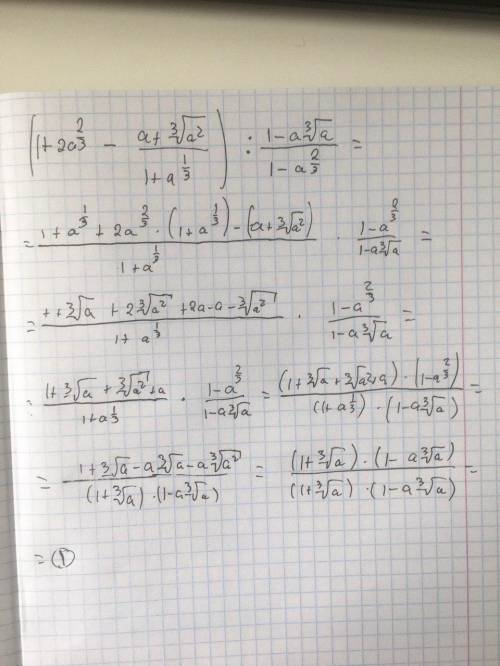 (1+2a^{2/3} - \frac{a+\sqrt[3]{a^2}}{1+a^{1/3}}) : \frac{1-a\sqrt[3]{a}}{1-a^{2/3}} =
= \frac{1+a^{1/3}+2a^{2/3}·(1+a^{1/3})-(a+\sqrt[3]{a^2})}{1+a^{1/3}} · \frac{1-a^{2/3}}{1-a\sqrt[3]{a}} =
= \frac{1+\sqrt[3]{a}+2\sqrt[3]{a^2}+2a-a-\sqrt[3]{a^2}}{1+a^{1/3}} · \frac{1-a^{2/3}}{1-a\sqrt[3]{a}} =
= \frac{1+\sqrt[3]{a}+\sqrt[3]{a^2}+a}{1+a^{1/3}} · \frac{1-a^{2/3}}{1-a\sqrt[3]{a}} = \frac{(1+\sqrt[3]{a}+\sqrt[3]{a^2}+a)·(1-a^{2/3})}{(1+a^{1/3})·(1-a\sqrt[3]{a})} =
= \frac{1+\sqrt[3]{a}-a\sqrt[3]{a}-a\sqrt[3]{a^2}}{(1+\sqrt[3]{a})·(1-a\sqrt[3]{a})} = \frac{(1+\sqrt[3]{a})·(1-a\sqrt[3]{a})}{(1+\sqrt[3]{a})·(1-a\sqrt[3]{a})} =
= 1